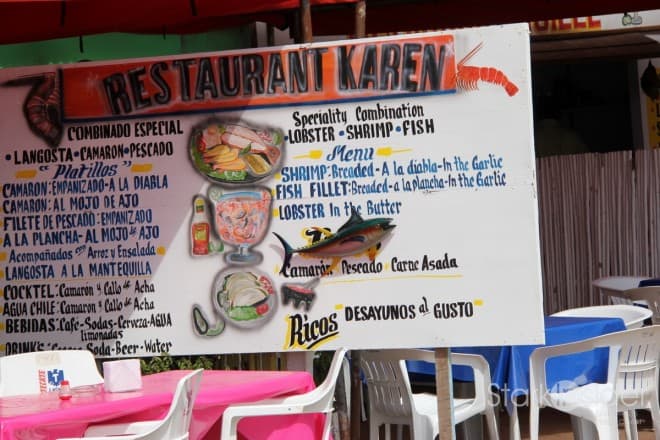 RESTAURANT KAREN
COMBINADO ESPECIAL
• LANGOSTA • CAMARON • PESCADO
"Platillos"
CAMARON: EMPANIZADO - A LA DIABLA
CAMARON: AL MOJO DE AJO
FILETE DE PESCADO: EMPANIZADO
A LA PLANCHA - AL MOJO DE AJO
Acompañados con Arroz y Ensalada
LANGOSTA A LA MANTEQUILLA
COCKTEL: Camarón y Callo de Acha
AGUA CHILE: Camarón y Callo de Acha
BEBIDAS: Cafe - Sodas - Cerveza - AGUA
limonadas
DRINK'S: Soda - Beer - Water
Speciality Combination
• LOBSTER • SHRIMP • FISH
Menu
SHRIMP: Breaded - A la diabla - In the Garlic
FISH FILLET: Breaded - a la plancha - In the Garlic
LOBSTER In the Butter
Camarón Pescado - Carne Asada
Ricos DESAYUNOS al GUSTO
TECATE
Stark Insider